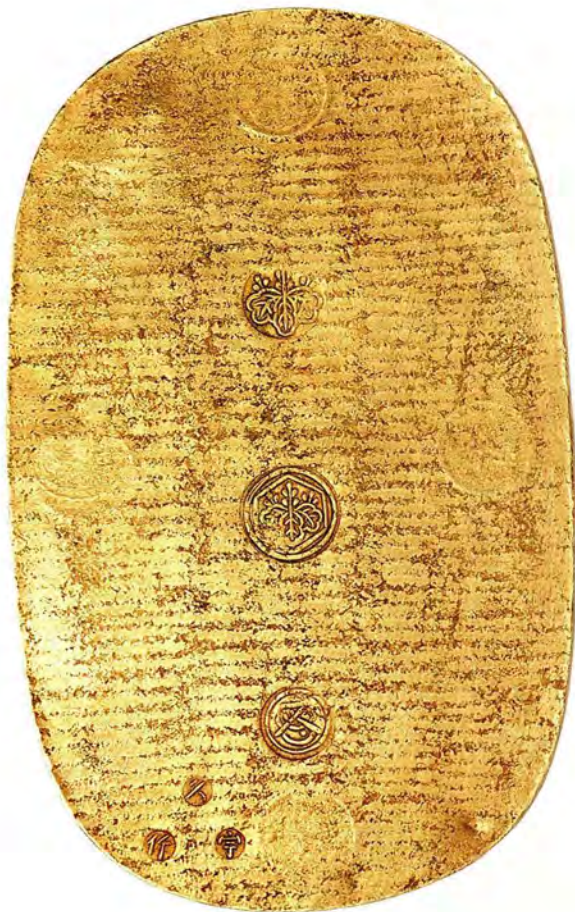 久
竹 宇